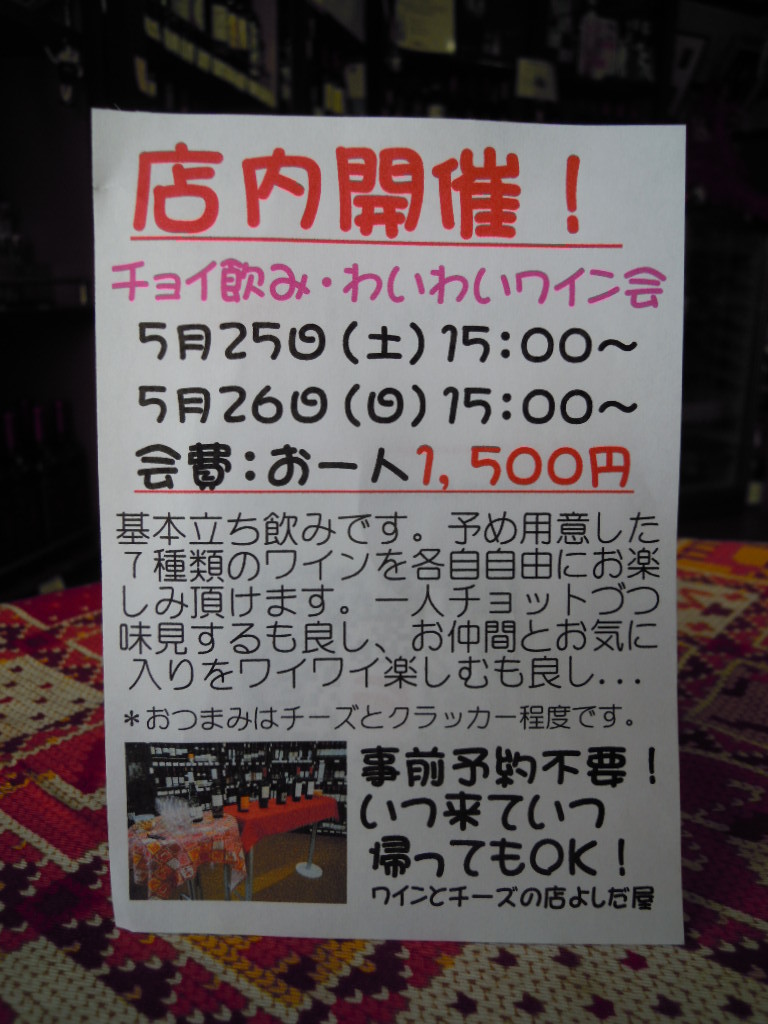 店内開催！
チョイ飲み・わいわいワイン会
5月25日（土）15：00～
5月26日（日）15：00～
会費：お一人1,500円
基本立ち飲みです。予め用意した
７種類のワインを各自自由にお楽
しみ頂けます。一人チョットづつ
味見するも良し、お仲間とお気に
入りをワイワイ楽しむも良し...
＊おつまみはチーズとクラッカー程度です。
事前予約不要！
いつ来ていつ
帰ってもOK！
ワインとチーズの店よしだ屋